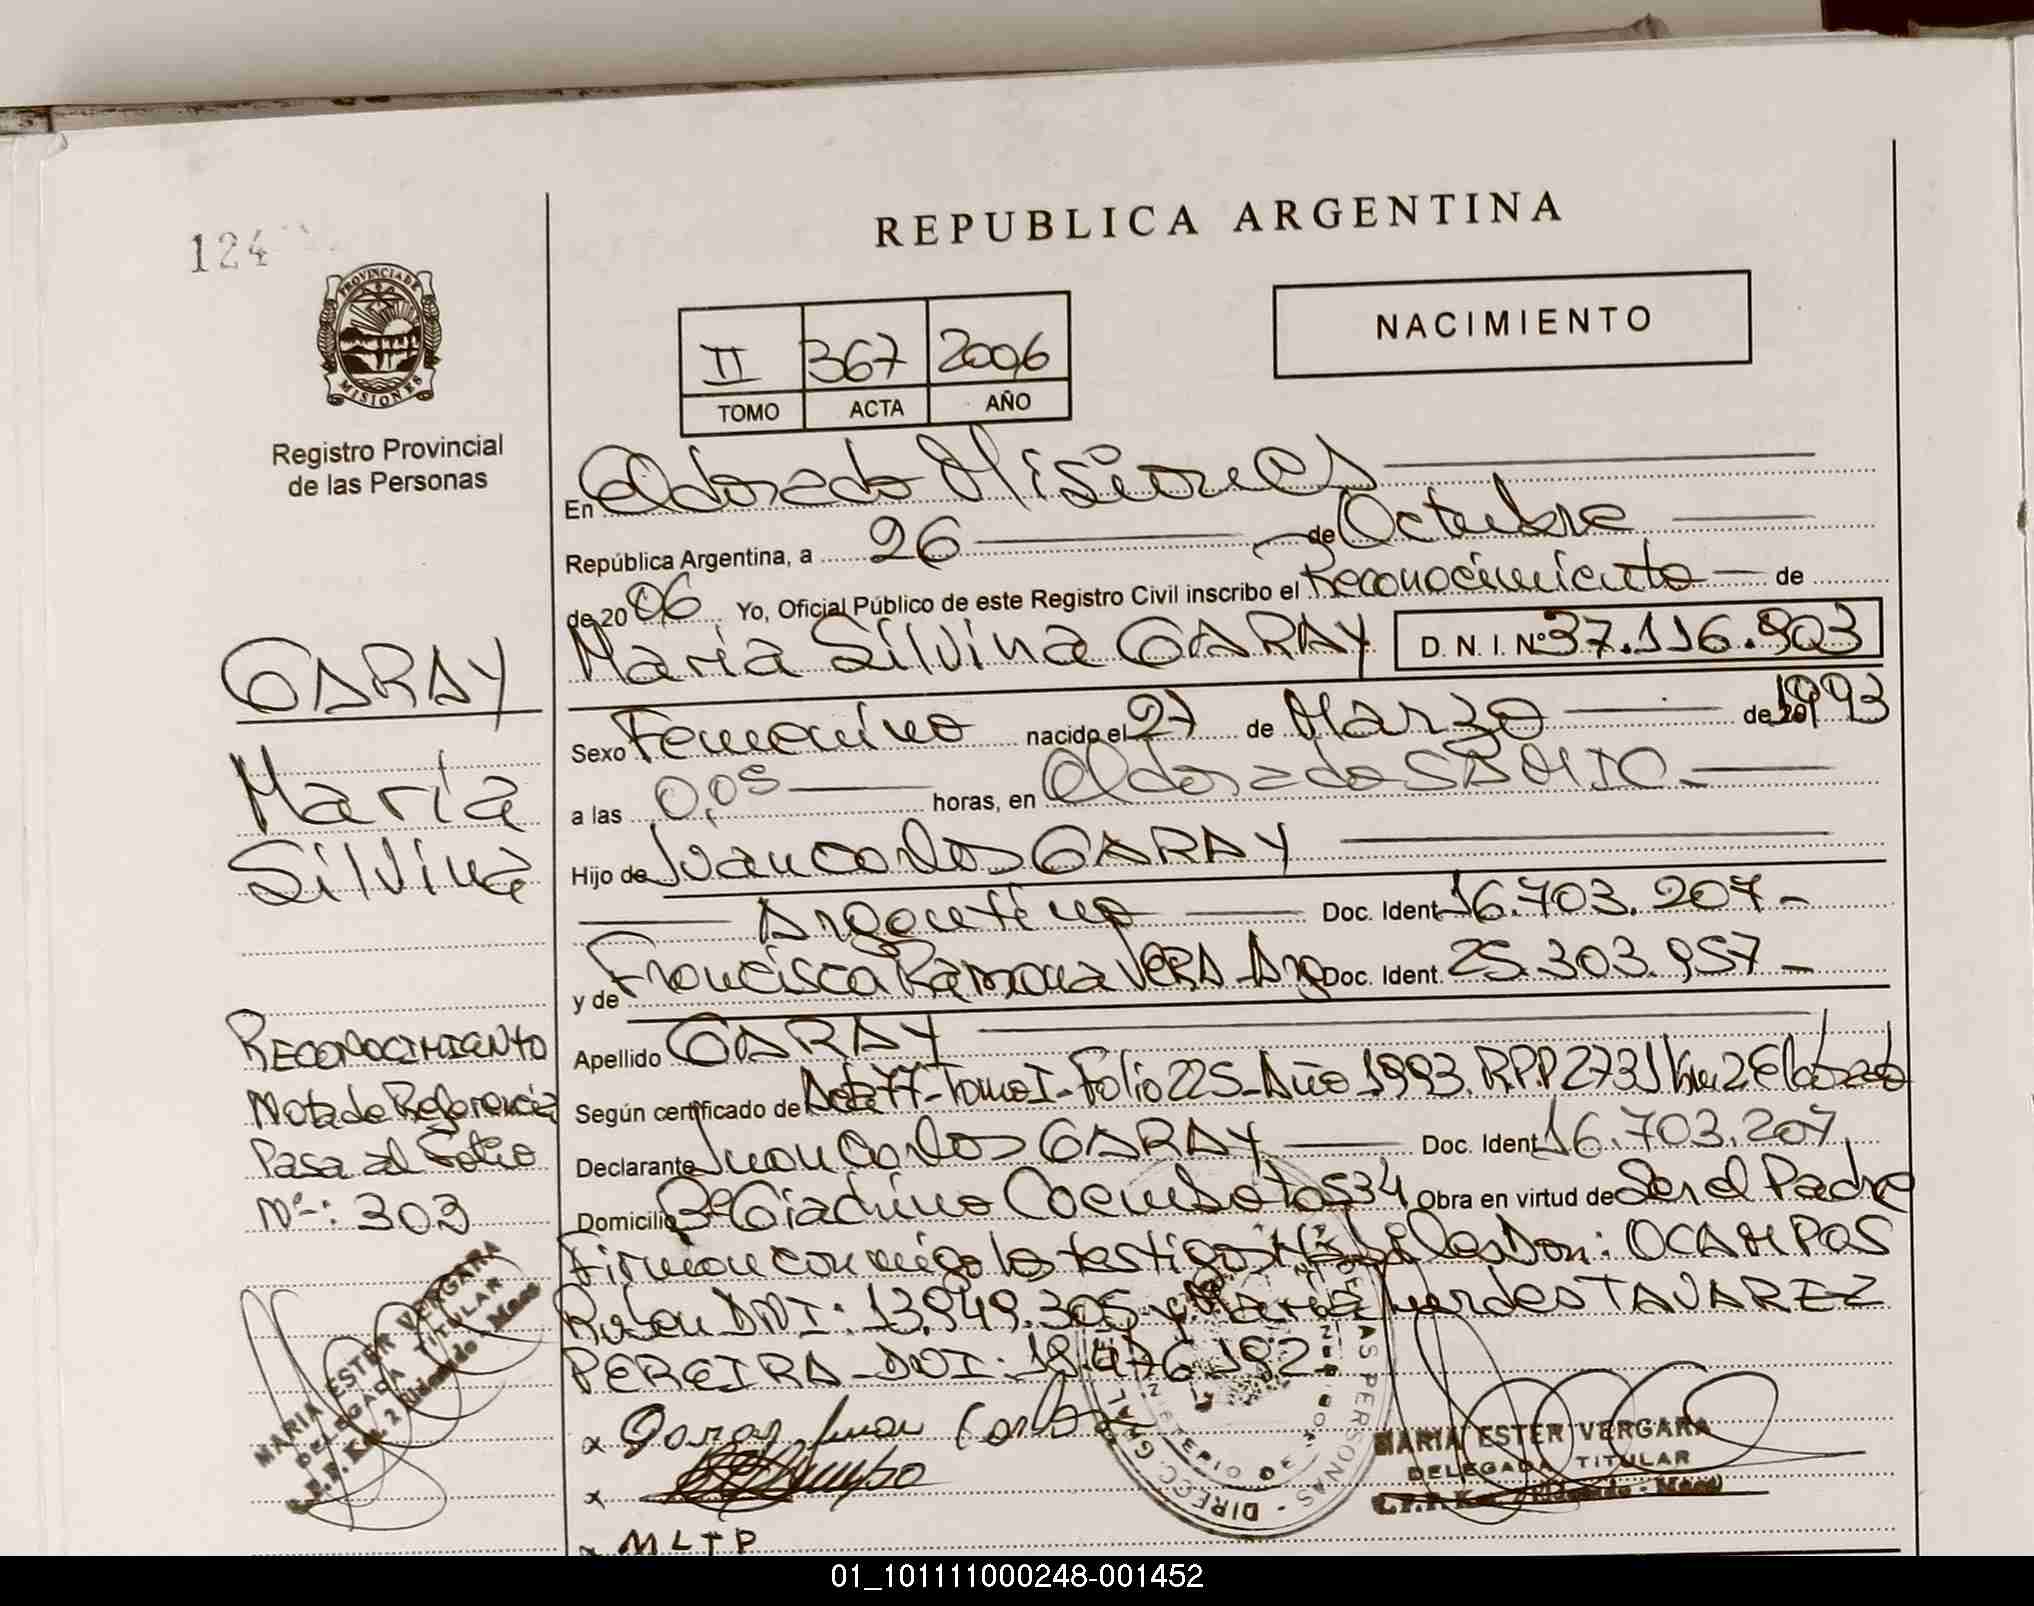 124
REPUBLICA ARGENTINA
PROVINCIA DE
MISIONES
Registro Provincial
de las Personas
II 367 2006
TOMO ACTA AÑO
NACIMIENTO
En Eldorado Misiones
República Argentina, a 26 de Octubre
de 2006 Yo, Oficial Público de este Registro Civil inscribo el Reconocimiento de
Maria Silvina GARAY D.N.I. Nº 37.116.903
Sexo Femenino nacido el 27 de Marzo de 1993
a las 0,05 horas, en Eldorado SAMIC
Hijo de Juan Carlos GARAY
Argentino Doc. Ident. 16.703.207-
y de Francisca Ramona VERA Arg Doc. Ident. 25.303.957-
Apellido GARAY
Según certificado de Acta 77-Tomo I-Folio 225-Año 1993. RPP 2731 Km 2 Eldorado
Declarante Juan Carlos GARAY Doc. Ident. 16.703.207
Domicilio Bº Giachino 534 Obra en virtud de Ser el Padre
Firman conmigo los testigos Don: OCAMPOS
Ruben DNI: 13.949.305 y Maria Lourdes TAVAREZ
PEREIRA-DNI: 18.476.192
x Garay Juan Carlos
x
x MLTP
GARAY
Maria
Silvina
RECONOCIMIENTO
Nota de Referencia
Pasa al Folio
Nº-: 303
MARIA ESTER VERGARA
DELEGADA TITULAR
MARIA ESTER VERGARA
DELEGADA TITULAR
01_101111000248-001452